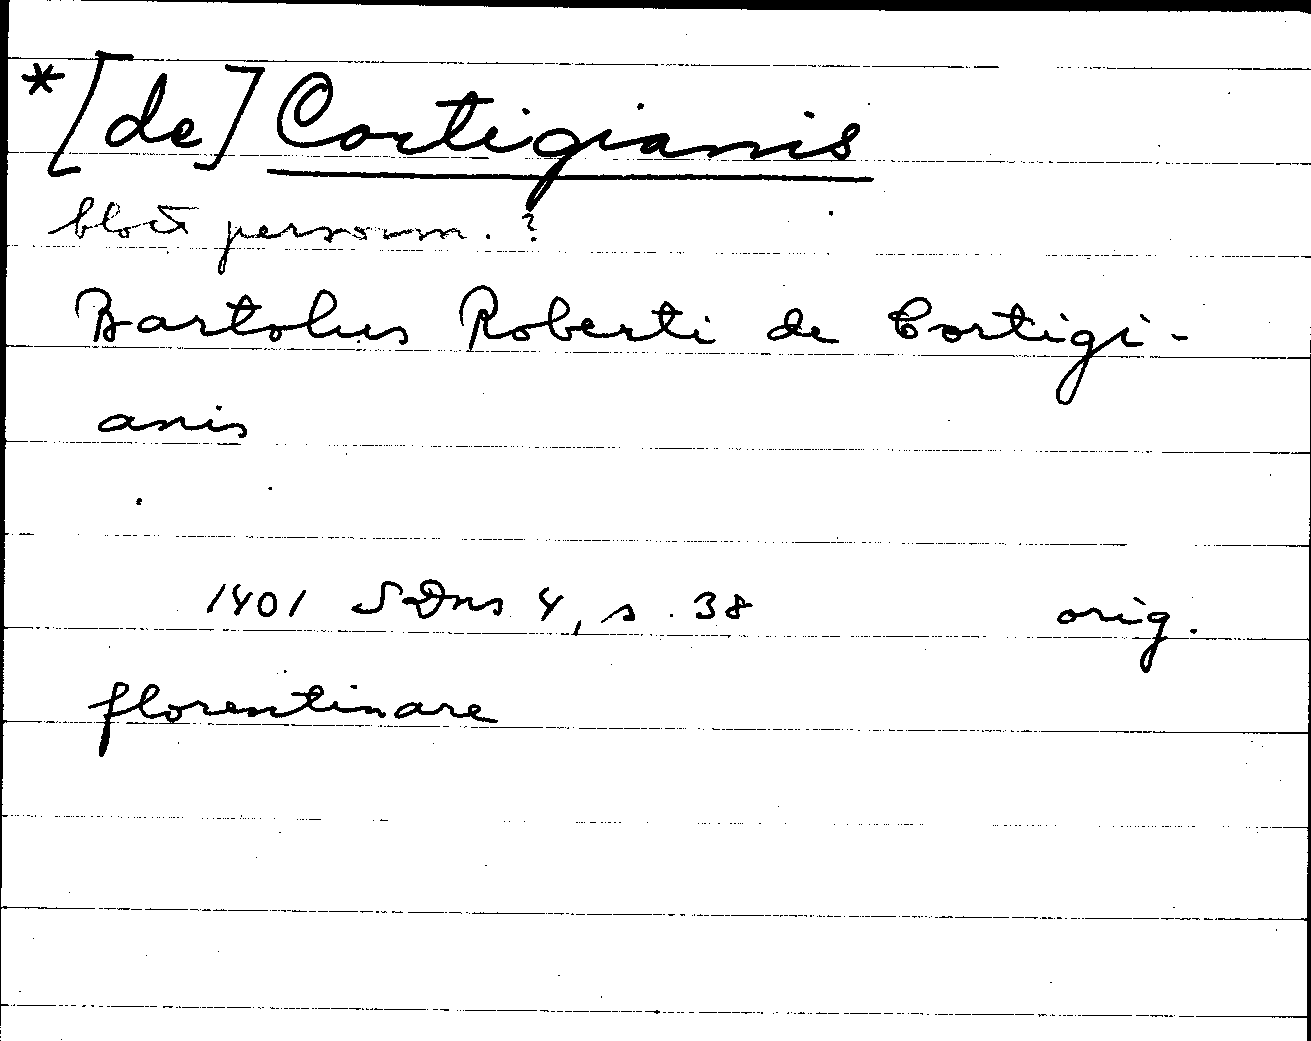 *[de] Cortigianis
blott personn. ?
Bartolus Roberti de Cortigi-
anis
1401 SDns 4, s. 38 orig.
florentinare